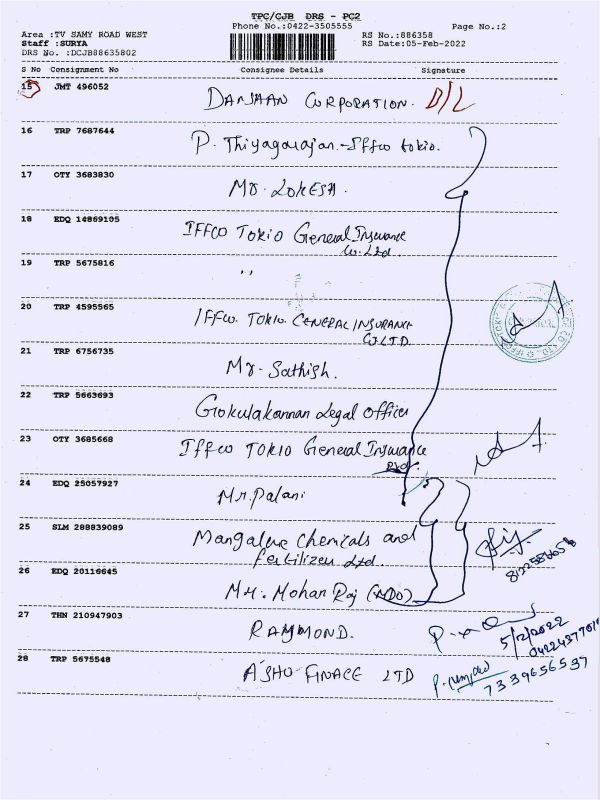 TPC/CJB DRS - PC2
Phone No.:0422-3505555
Page No.:2
Area :TV SAMY ROAD WEST
Staff :SURYA
DRS No. :DCJB88635802
RS No.:886358
RS Date:05-Feb-2022
S No Consignment No Consignee Details Signature
15 JMT 496052 DANJAAN CORPORATION. D/L
16 TRP 7687644 P. Thiyagarajan - Iffco tokio.
17 OTY 3683830 Mr. LOKESH.
18 EDQ 14869105 IFFCO TOKIO General Insurance
Co. Ltd.
19 TRP 5675816 ,,
20 TRP 4595565 IFFCO. TOKIO. GENERAL INSURANCE
CO LTD.
21 TRP 6756735 Mr. Sathish.
22 TRP 5663693 Gokulakannan Legal Officer
23 OTY 3685668 Iffco TOKIO General Insurance
24 EDQ 25057927 Mr. Palani
25 SLM 288839089 Mangalore Chemicals and
Fertilizers Ltd.
26 EDQ 20116645 Mr. Mohan Raj (NDO)
27 THN 210947903 RAYMOND.
5/2/2022
28 TRP 5675548 ASHU FINACE LTD
7339656537